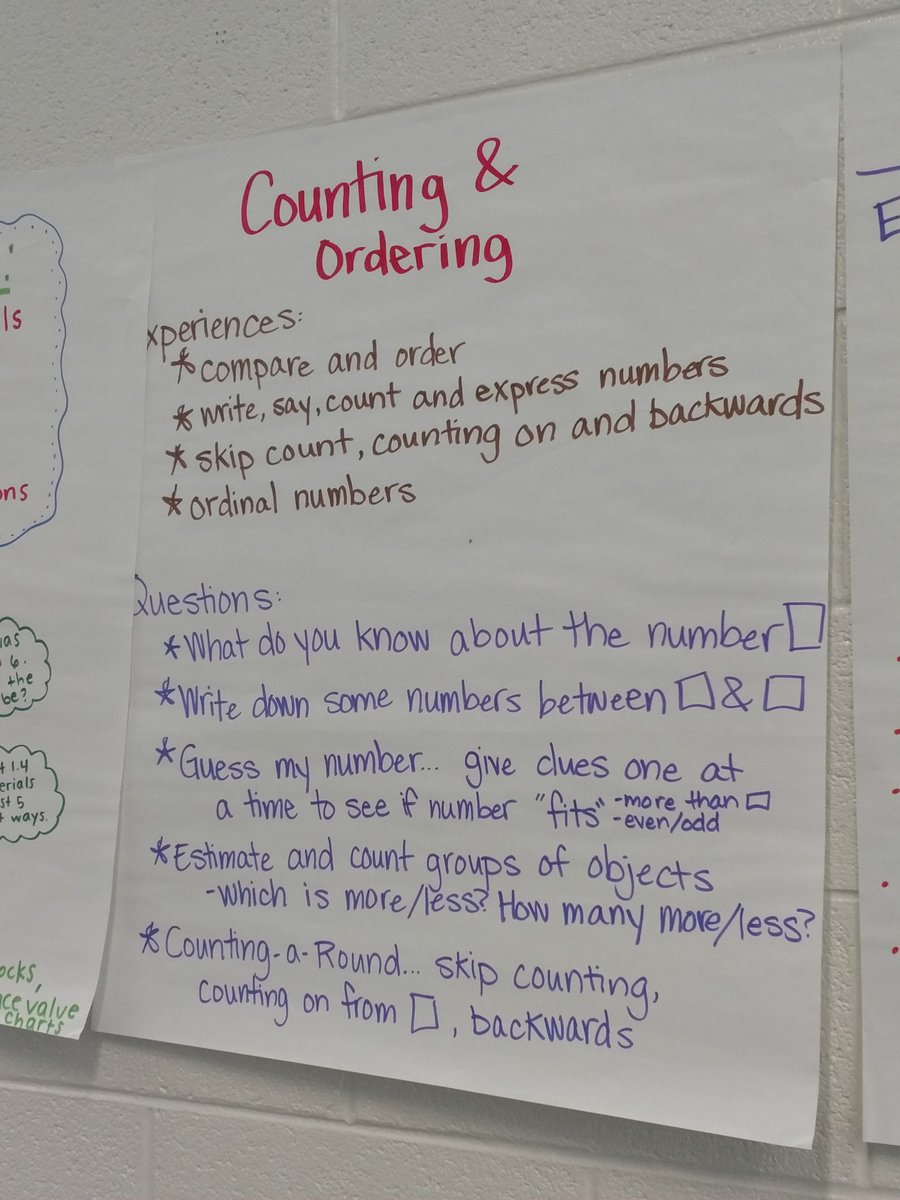 Counting &
Ordering
xperiences:
*compare and order
*write, say, count and express numbers
*skip count, counting on and backwards
*ordinal numbers
Questions:
*What do you know about the number □
*Write down some numbers between □ & □
*Guess my number... give clues one at
a time to see if number "fits" -more than □
-even/odd
*Estimate and count groups of objects
-which is more/less? How many more/less?
*Counting-a-Round... skip counting,
counting on from □, backwards
ls
ons
as
6.
the
be?
1.4
erials
st 5
ways.
ocks,
ce value
charts
E